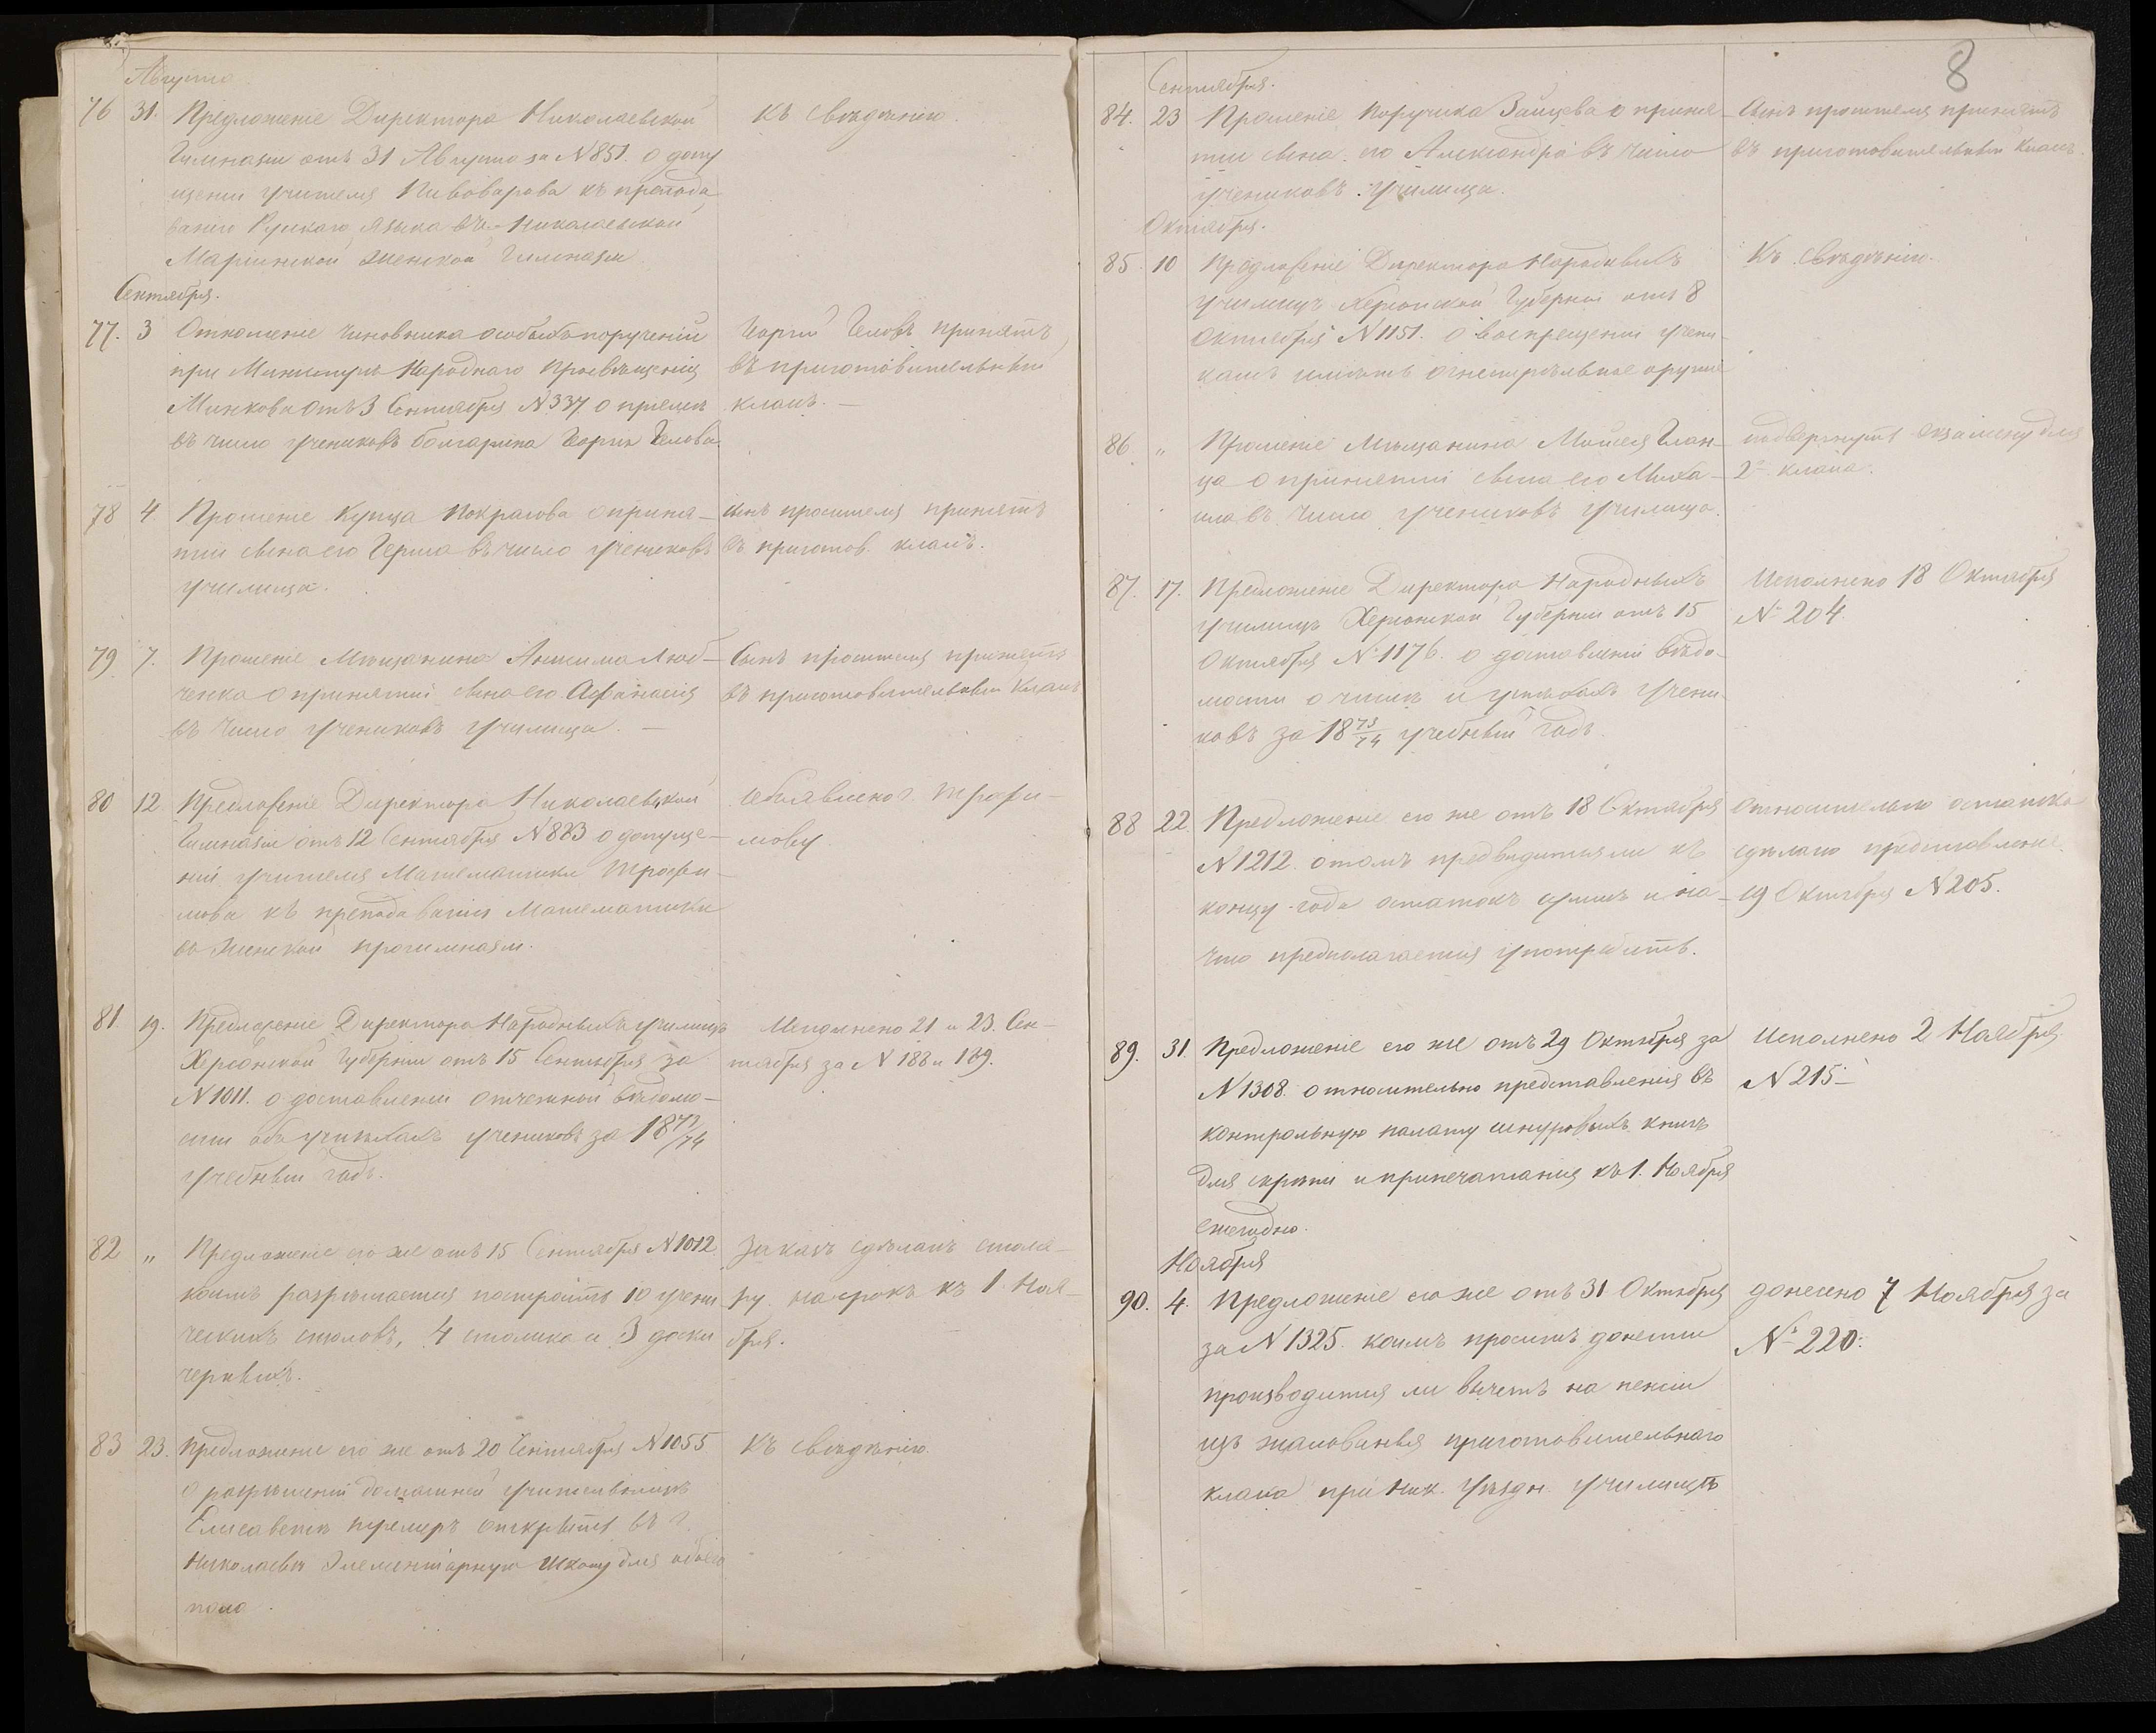 Августа
76 31. Предложеніе Директора Николаевской Къ свѣдѣнію.
Гимназіи отъ 31 Августа за N 851. о допу
щеніи учителя Пивоварова къ препода
ванію Рускаго языка въ Николаевской
Маріинской Женской Гимназіи
Сентября.
77. 3 Отношеніе Чиновника особыхъ порученій Георгій Геловъ принятъ
при Министрѣ Народнаго Просвѣщенія въ приготовительный
Минкова отъ 3 Сентября N 337 о пріемѣ классъ. —
въ число учениковъ болгарина Георгія Гелова
78 4. Прошеніе Купца Покрасова о приня- сынъ просителя принятъ
тіи сына его въ число учениковъ въ приготов. классъ.
училища.
79 7. Прошеніе Мѣщанина Анисима Люб- Сынъ просителя принятъ
ченка о принятіи сына его Афанасія въ приготовительный Классъ
въ число учениковъ училища. —
80 12. Предложеніе Директора Николаевской Объявлено г. Трофи-
Гимназіи отъ 12 Сентября N 883 о допуще- мову
ніи учителя Математики Трофи-
мова къ преподаванію Математики
въ Женской прогимназіи.
81. 19. Предложеніе Директора Народныхъ училищъ Исполнено 21 и 23. Сен-
Херсонской Губерніи отъ 15 Сентября за тября за N 188 и 189.
N 1011. о доставленіи отчетной вѣдомо-
сти объ успѣхахъ учениковъ за 1873/74
учебный годъ.
82 „ Предложеніе его же отъ 15 Сентября N 1012 Заказъ сдѣланъ столя-
коимъ разрѣшается построить 10 учени ру на срокъ къ 1 Ноя-
ческихъ столовъ, 4 столика и 3 доски бря.
черныхъ.
83 23. Предложеніе его же отъ 20 Сентября N 1055 Къ свѣдѣнію.
о разрѣшеніи домашней учительницѣ
Елисаветѣ открыть въ г.
Николаевѣ Элементарную Школу для обоего
пола.
8
Сентября.
84. 23 Прошеніе Поручика Зайцева о приня- Сынъ просителя принятъ
тіи сына его Александра въ число въ приготовительный классъ.
учениковъ училища.
Октября.
85. 10 Предложеніе Директора Народныхъ Къ свѣдѣнію.
училищъ Херсонской Губерніи отъ 8
Октября N 1151. о воспрещеніи учени-
камъ имѣть огнестрѣльное оружіе
86. „ Прошеніе Мѣщанина Моисея Глан- подвергнутъ экзамену для
ца о принятіи сына его Миха- 2го класса.
ила въ число учениковъ училища.
87. 17. Предложеніе Директора Народныхъ Исполнено 18 Октября
училищъ Херсонской Губерніи отъ 15 N 204.
Октября N 1176. о доставленіи вѣдо-
мости о числѣ и успѣхахъ учени-
ковъ за 1873/74 учебный годъ.
88 22. Предложеніе его же отъ 18 Октября Относительно остатка
N 1212. о томъ предвидится ли къ сдѣлано представленіе
концу года остатокъ суммъ и на 19 Октября N 205.
что предполагается употребить.
89. 31. Предложеніе его же отъ 29 Октября за Исполнено 2 Ноября
N 1308. относительно представленія въ N 215
контрольную палату шнуровыхъ книгъ
для скрѣпы и припечатанія къ 1. Ноября
ежегодно.
Ноября
90. 4. Предложеніе его же отъ 31 Октября донесено 7 Ноября за
за N 1325. коимъ проситъ донести N 220.
производится ли вычетъ на пенсіи
изъ жалованья приготовительнаго
класса при Ник. уѣздн. училищѣ